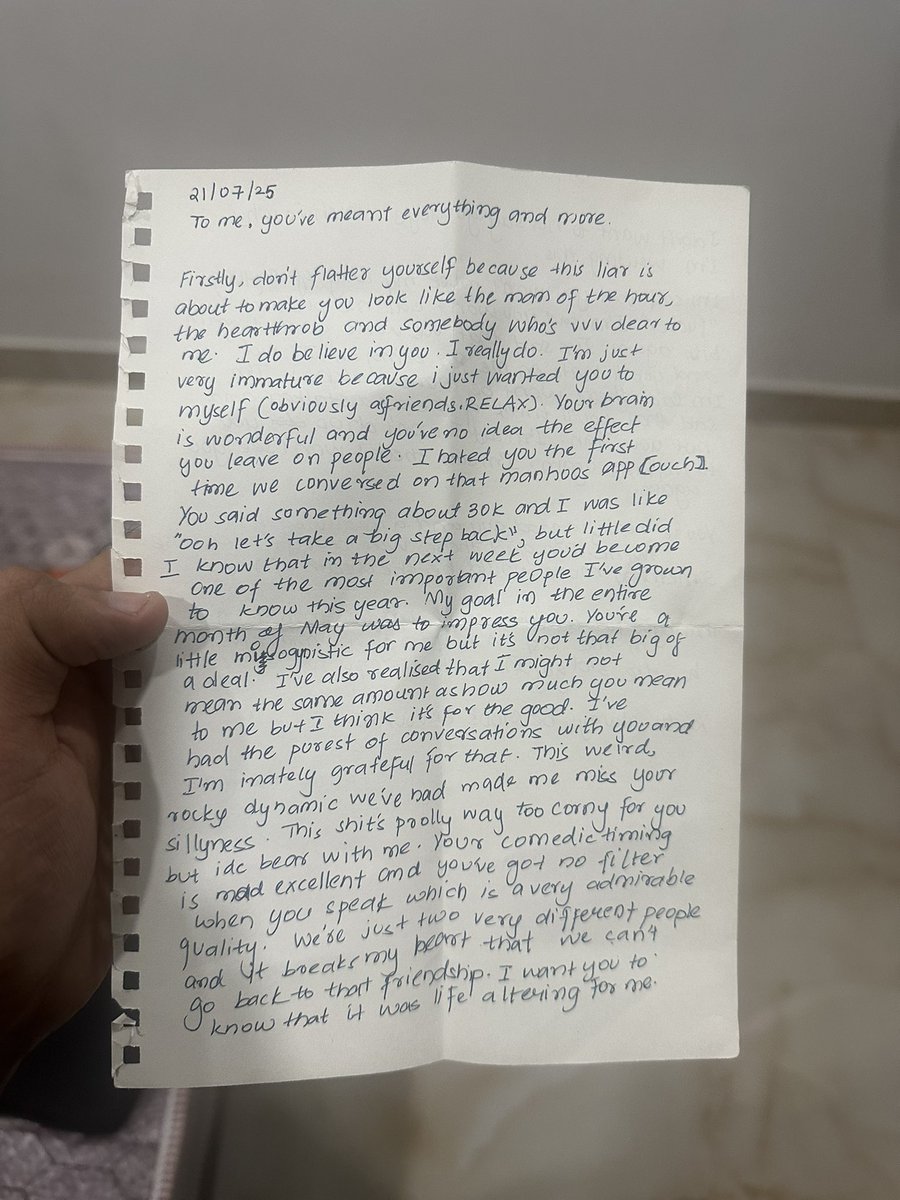 21/07/25
To me, you've meant everything and more.
Firstly, don't flatter yourself because this liar is
about to make you look like the man of the hour,
the heartthrob and somebody who's vvv dear to
me. I do believe in you. I really do. I'm just
very immature because i just wanted you to
myself (obviously as friends.RELAX). Your brain
is wonderful and you've no idea the effect
you leave on people. I hated you the first
time we conversed on that manhoos app [ouch].
You said something about 30k and I was like
"ooh let's take a big step back", but little did
I know that in the next week you'd become
one of the most important people I've grown
to know this year. My goal in the entire
month of May was to impress you. You're a
little for me but it's not that big of
a deal. I've also realised that I might not
mean the same amount as how much you mean
to me but I think it's for the good. I've
had the purest of conversations with you and
I'm inately grateful for that. This weird,
rocky dynamic we've had made me miss your
sillyness. This shit's prolly way too corny for you
but idc bear with me. Your comedic timing
is mad excellent and you've got no filter
when you speak which is a very admirable
quality. We're just two very different people
and it breaks my heart that we can't
go back to that friendship. I want you to
know that it was life altering for me.